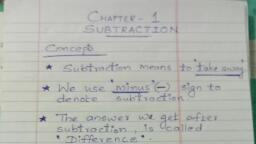 CHAPTER - 1
SUBTRACTION
Concept
* Subtraction means to 'take away'
* We use 'minus' (-) sign to
denote subtraction
* The answer we get after
subtraction, is called
"Difference".